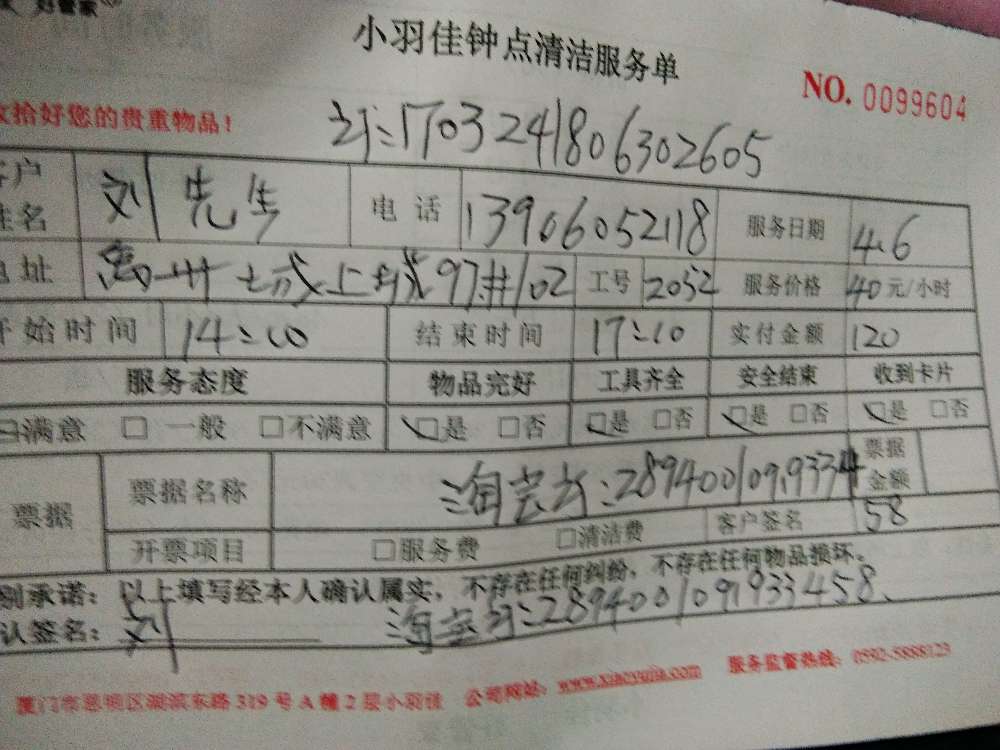 好管家
小羽佳钟点清洁服务单
NO. 0099604
收拾好您的贵重物品！
1703241806302605
客户姓名 刘先生 电话 13906052118 服务日期 4.6
地址 上城97#102 工号 2052 服务价格 40元/小时
开始时间 14:10 结束时间 17:10 实付金额 120
服务态度 物品完好 工具齐全 安全结束 收到卡片
☑满意 □一般 □不满意 ☑是 □否 ☑是 □否 ☑是 □否 ☑是 □否
票据 票据名称 淘宝号:2894001099334 票据金额
58
开票项目 □服务费 □清洁费 客户签名
别承诺：以上填写经本人确认属实，不存在任何纠纷，不存在任何物品损坏。
认签名：刘 淘宝号:2894001091933458
厦门市思明区湖滨东路319号A幢2层小羽佳 公司网站：www.xiaoyujia.com 服务监督热线：0592-5888123